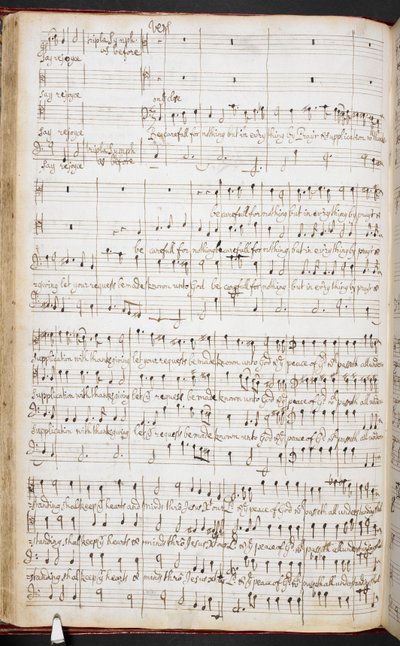 Vers
tripla Symph
as before
say rejoyce
say rejoyce
say rejoyce
Be carefull for nothing but in every thing by Prair & supplication
tripla Symph
as before
say rejoyce
be carefull for nothing but in every thing by prayr &
be carefull for nothing be carefull for nothing but in every thing by prayr &
giving let your requests be made known unto God be carefull for nothing but in every thing by prayr &
supplication with thanksgiving let your requests be made known unto God & ye peace of God wch passeth all under
supplication with thanksgiving let yr requests be made known unto God & ye peace of God wch passeth all under
supplication with thanksgiving let yr requests be made known unto God & ye peace of God wch passeth all under
standing shall keep yr hearts and minds thro Jesus Xt our Ld & ye peace of God wch passeth all understanding shal
standing shall keep yr hearts & minds thro Jesus Xt our Ld & ye peace of God wch passeth all understanding shal
standing shall keep yr hearts & minds thro Jesus Xt our Ld & ye peace of God wch passeth all understanding shal